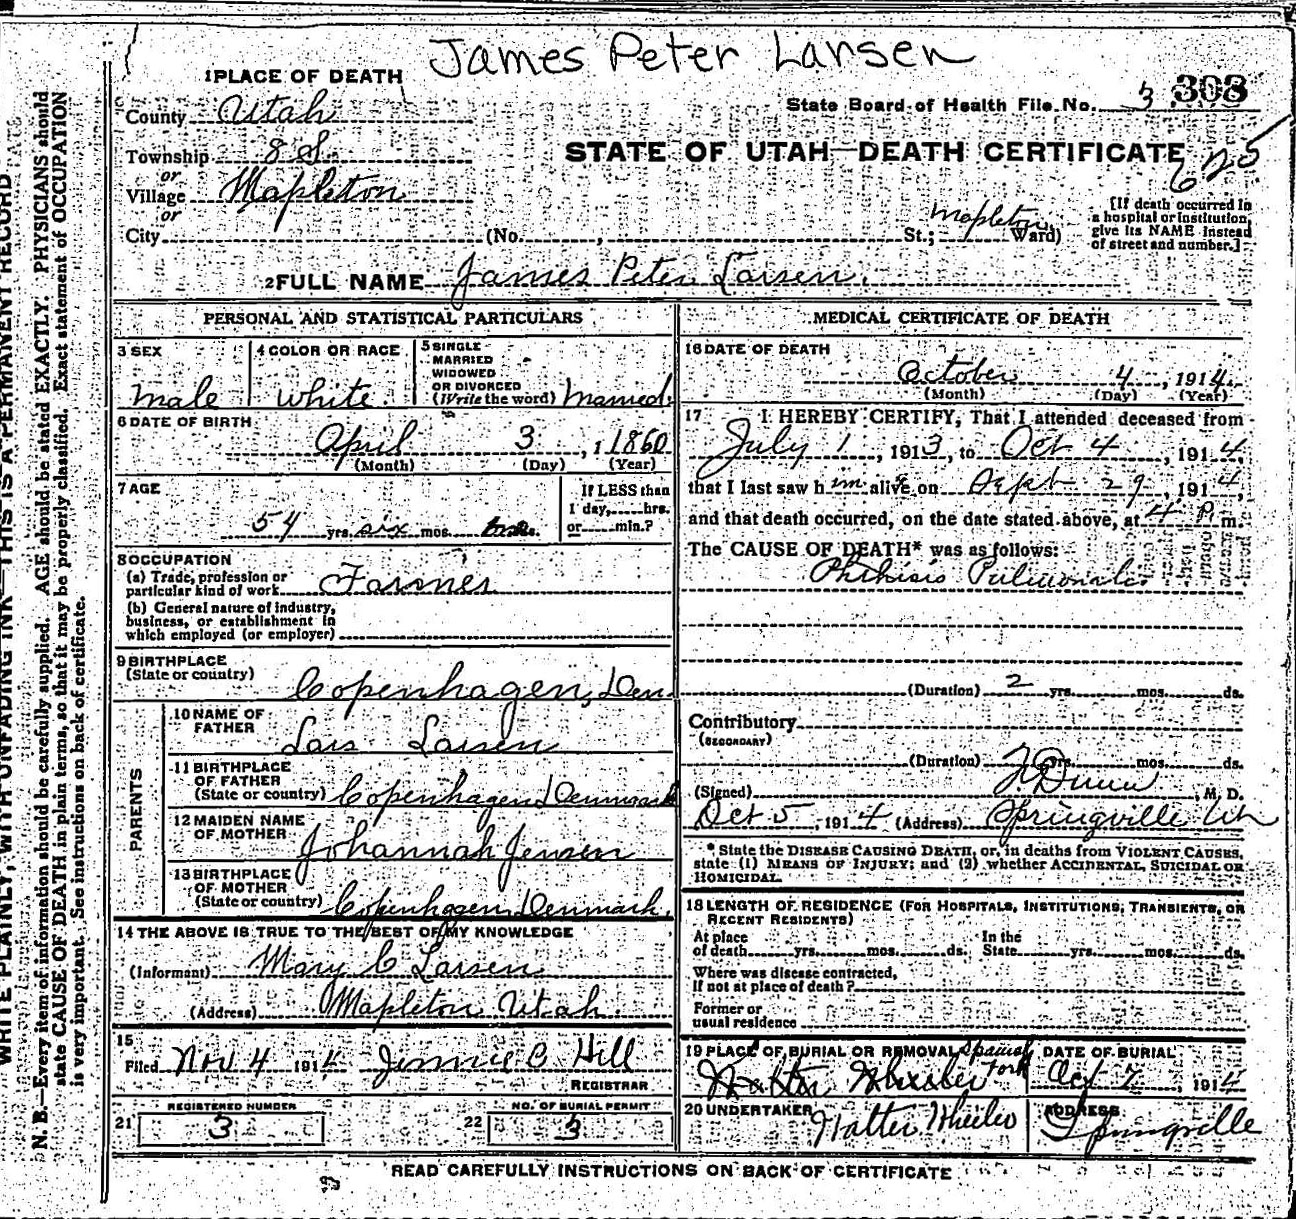 James Peter Larsen
1 PLACE OF DEATH
County Utah
State Board of Health File No. 3 308
Township 8 S.
or
Village Mapleton
or
STATE OF UTAH—DEATH CERTIFICATE
625
City (No. , St.; Mapleton Ward)
[If death occurred in
a hospital or institution,
give its NAME instead
of street and number.]
2 FULL NAME James Peter Larsen.
PERSONAL AND STATISTICAL PARTICULARS
3 SEX
male
4 COLOR OR RACE
White.
5 SINGLE
MARRIED
WIDOWED
OR DIVORCED
(Write the word) Married.
6 DATE OF BIRTH
April 3, 1860
(Month) (Day) (Year)
7 AGE
54 yrs. six mos. ds.
If LESS than
1 day, hrs.
or min.?
8 OCCUPATION
(a) Trade, profession or
particular kind of work Farmer
(b) General nature of industry,
business, or establishment in
which employed (or employer)
9 BIRTHPLACE
(State or country) Copenhagen, Den.
PARENTS
10 NAME OF
FATHER
Lars Larsen
11 BIRTHPLACE
OF FATHER
(State or country) Copenhagen Denmark
12 MAIDEN NAME
OF MOTHER
Johannah Jensen
13 BIRTHPLACE
OF MOTHER
(State or country) Copenhagen, Denmark.
14 THE ABOVE IS TRUE TO THE BEST OF MY KNOWLEDGE
(Informant) Mary C Larsen
(Address) Mapleton Utah.
15
Filed Nov 4 1914 Jennie C. Hill
REGISTRAR
21 REGISTERED NUMBER
3
22 NO. OF BURIAL PERMIT
3
MEDICAL CERTIFICATE OF DEATH
16 DATE OF DEATH
October 4, 1914.
(Month) (Day) (Year)
17 I HEREBY CERTIFY, That I attended deceased from
July 1, 1913, to Oct 4, 1914,
that I last saw him alive on Sept 29, 1914,
and that death occurred, on the date stated above, at 4 P. m.
The CAUSE OF DEATH* was as follows:
Phthisis Pulmonalis
(Duration) 2 yrs. mos. ds.
Contributory
(SECONDARY)
(Duration) yrs. mos. ds.
(Signed) F. Dunn, M. D.
Oct 5, 1914 (Address) Springville Uth
* State the DISEASE CAUSING DEATH, or, in deaths from VIOLENT CAUSES,
state (1) MEANS OF INJURY; and (2) whether ACCIDENTAL, SUICIDAL OR
HOMICIDAL.
18 LENGTH OF RESIDENCE (FOR HOSPITALS, INSTITUTIONS, TRANSIENTS, OR
RECENT RESIDENTS)
At place
of death yrs. mos. ds.
In the
State yrs. mos. ds.
Where was disease contracted,
If not at place of death?
Former or
usual residence
19 PLACE OF BURIAL OR REMOVAL Spanish
Fork
Walter Wheeler
DATE OF BURIAL
Oct 7, 1914
20 UNDERTAKER
Walter Wheeler
ADDRESS
Springville
READ CAREFULLY INSTRUCTIONS ON BACK OF CERTIFICATE
WRITE PLAINLY, WITH UNFADING INK—THIS IS A PERMANENT RECORD
N. B.—Every item of information should be carefully supplied. AGE should be stated EXACTLY. PHYSICIANS should
state CAUSE OF DEATH in plain terms, so that it may be properly classified. Exact statement of OCCUPATION
is very important. See instructions on back of certificate.